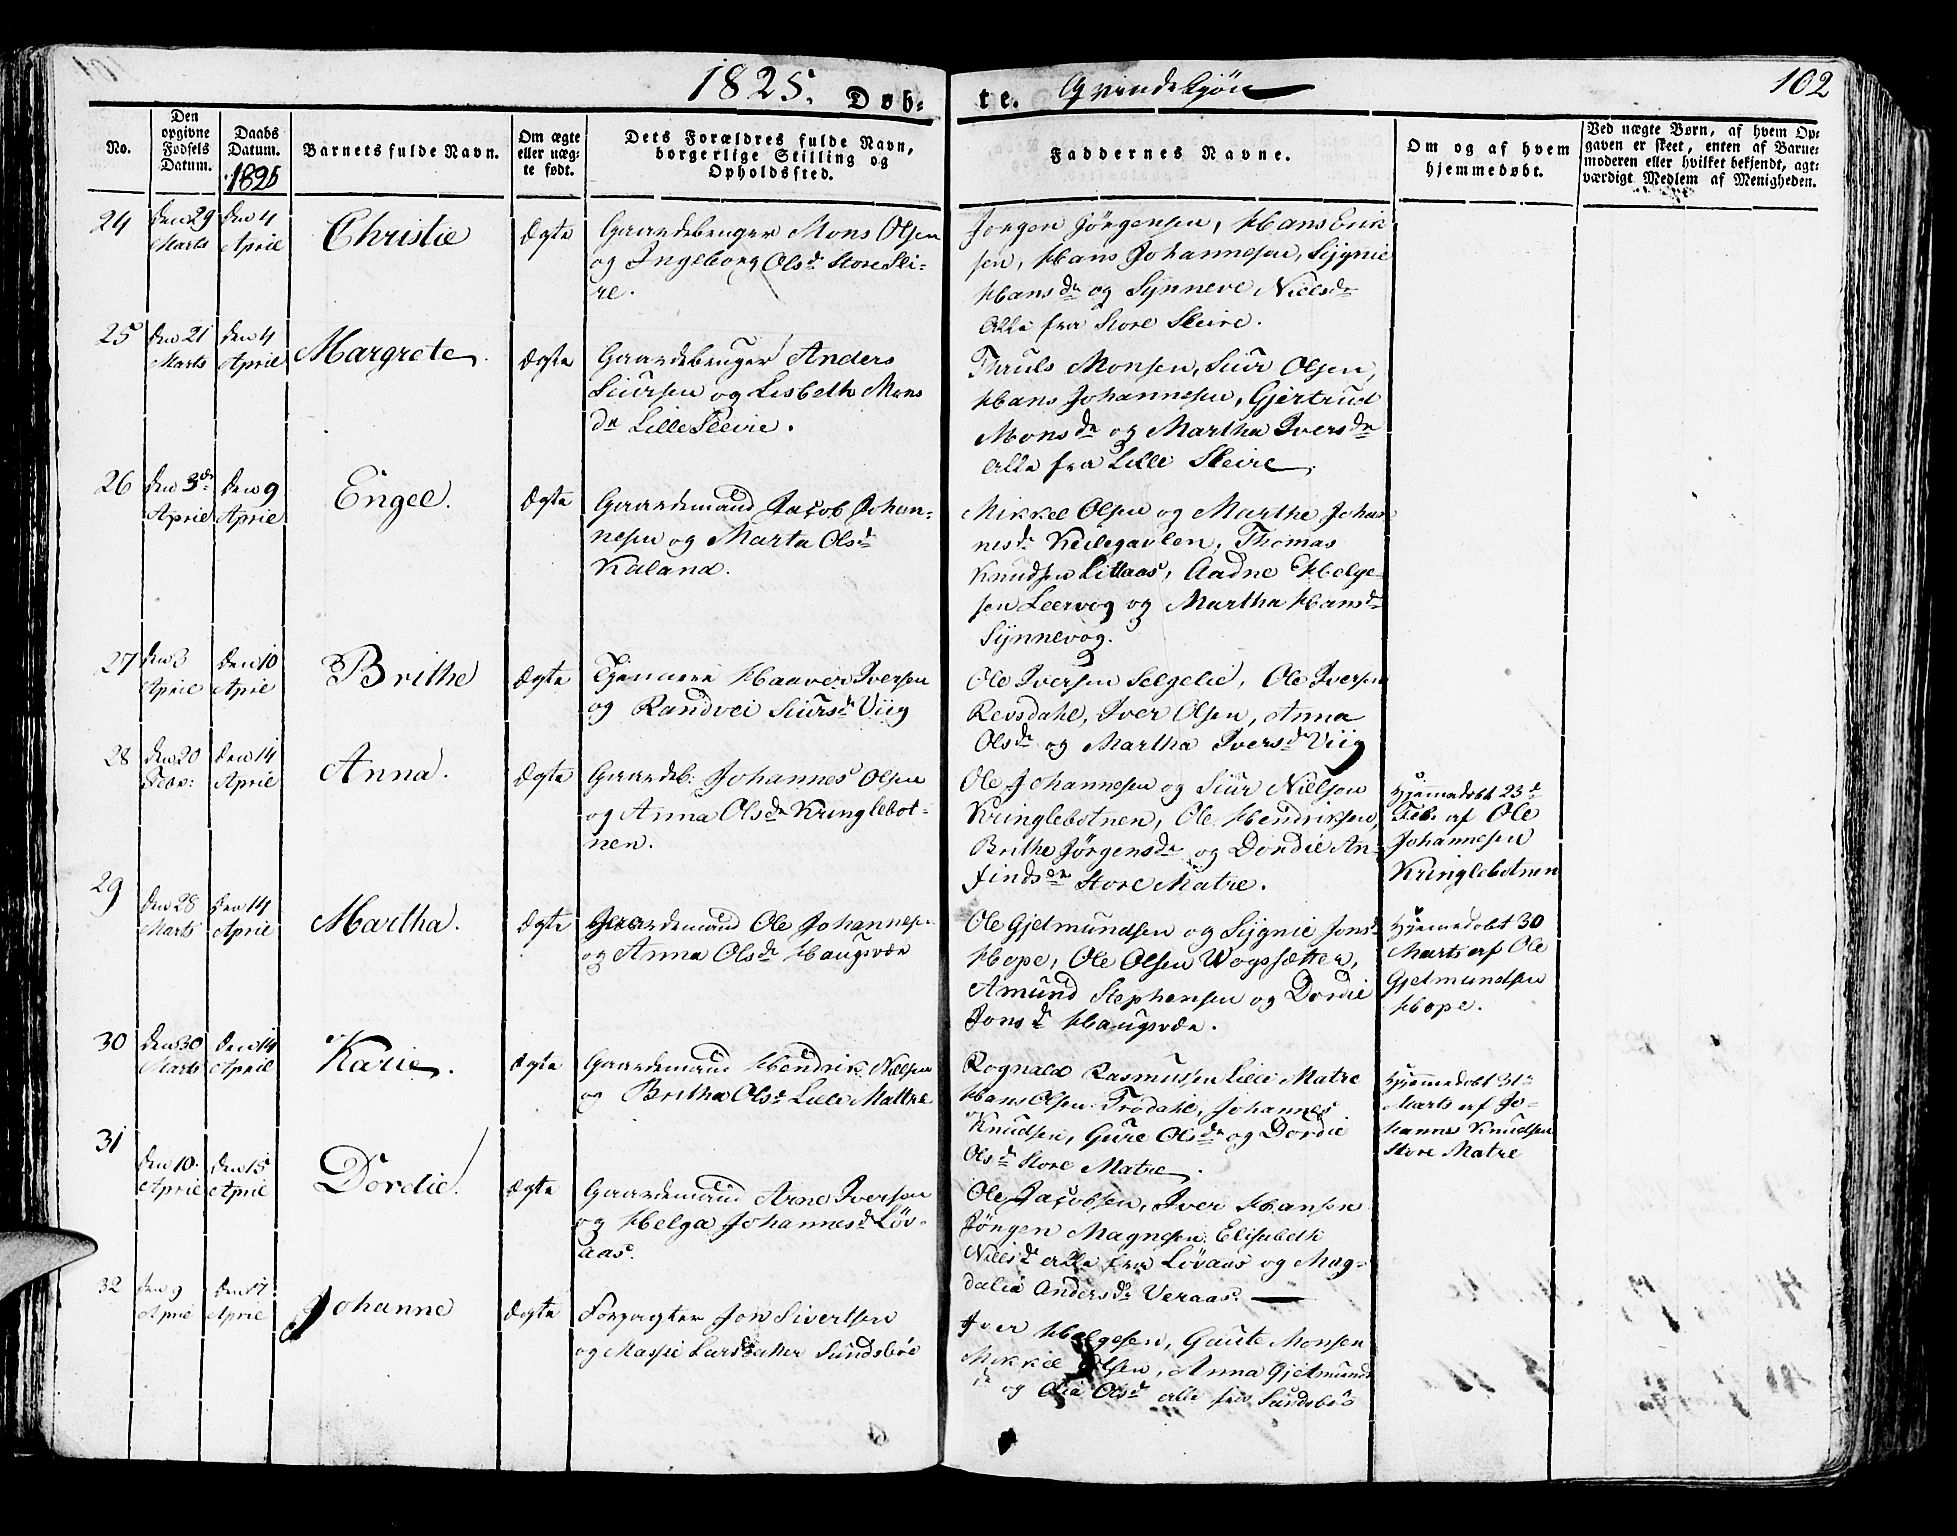 1825. Døb-
te. Qvindekjön
102
No.
Den
opgivne
Fødsels
Datum.
Daabs
Datum.
1825
Barnets fulde Navn.
Om ægte
eller uæg-
te født.
Dets Forældres fulde Navn,
borgerlige Stilling og
Opholdssted.
Faddernes Navne.
Om og af hvem
hjemmedøbt.
Ved uægte Børn, af hvem Op-
gaven er skeet, enten af Barne-
moderen eller hvilket bekjendt, agt-
værdigt Medlem af Menigheden.
24
den 29
Marts
den 4
April
Christie
Ægte
Gaardebruger Mons Olsen
og Ingeborg Olsdr Store Slei-
re.
Jørgen Jørgensen, Hans Erik-
sen, Hans Johannesen, Sygnie
Hansdr og Synneve Nielsdr
Alle fra Store Sleire.
25
den 21
Marts
den 4
April
Margrete
Ægte
Gaardebruger Anders
Siursen og Lisbeth Mons
dr Lille Sleire.
Truls Monsen, Siur Olsen,
Hans Johannesen, Gjertrud
Monsdr og Martha Iversdr
alle fra Lille Sleire.
26
den 3de
April
den 9
April
Engel.
Ægte
Gaardemand Jacob Johan-
nesen og Marta Olsdr
Kaland.
Mikkel Olsen og Marthe Johan
nesdr Keilegavlen, Thomas
Knudsen Litlaas, Aadne Helge-
sen Leervog og Martha Hansdr
Synnevog.
27
den 3
April
den 10
April
Brithe
Ægte
Tjennere Haaver Iversen
og Randvei Siursdr Viig
Ole Iversen Selgelie, Ole Iversen
Revsdahl, Iver Olsen, Anna
Olsdr og Martha Iversdr Viig
28
den 20
Febr:
den 14
April
Anna.
Ægte
Gaardeb: Johannes Olsen
og Anna Olsdr Kringlebot-
nen.
Ole Johannesen og Siur Nielsen
Kringlebotnen, Ole Hendriksen,
Brithe Jørgensdr og Dordie An-
findsdr Store Matre.
Hjemmedøbt 23d
Feb. af Ole
Johannesen
Kringlebotnen
29
den 28
Marts
den 14
April
Martha.
Ægte
Gaardemand Ole Johannesen
og Anna Olsdr Haugsvær
Ole Gjelmundsen og Sygnie Jonsdr
Hope, Ole Olsen Wogssætter,
Amund Stephensen og Dordie
Jonsdr Haugsvær.
Hjemmedøbt 30
Marts af Ole
Gjelmundsen
Hope.
30
den 30
Marts
den 14
April
Karie.
Ægte
Gaardemand Hendrik Nielsen
og Britha Olsdr Lille Mattre
Rognald Rasmussen Lille Matre
Hans Olsen Trodahl, Johannes
Knudsen, Gure Olsdr og Dordie
Olsdr Store Matre.
Hjemmedøbt 31te
Marts af Jo-
hannes Knudsen
Store Matre
31
den 10.
April
den 15
April
Dordie.
Ægte
Gaardemand Arne Iversen
og Helga Johannesdr Løv-
aas.
Ole Jacobsen, Iver Hansen
Jörgen Magnesen, Elisabeth
Nielsdr alle fra Løvaas og Mag-
dalia Andersdr Veraas.
32
den 9
April
den 17
April
Johanne
Ægte
Forpagter Jon Sivertsen
og Maspie Larsdatter Sundsböe
Iver Helgesen, Gaute Monsen
Mikkel Olsen, Anna Gjelmunds
dr og Olia Olsdr alle fra Sundsböe